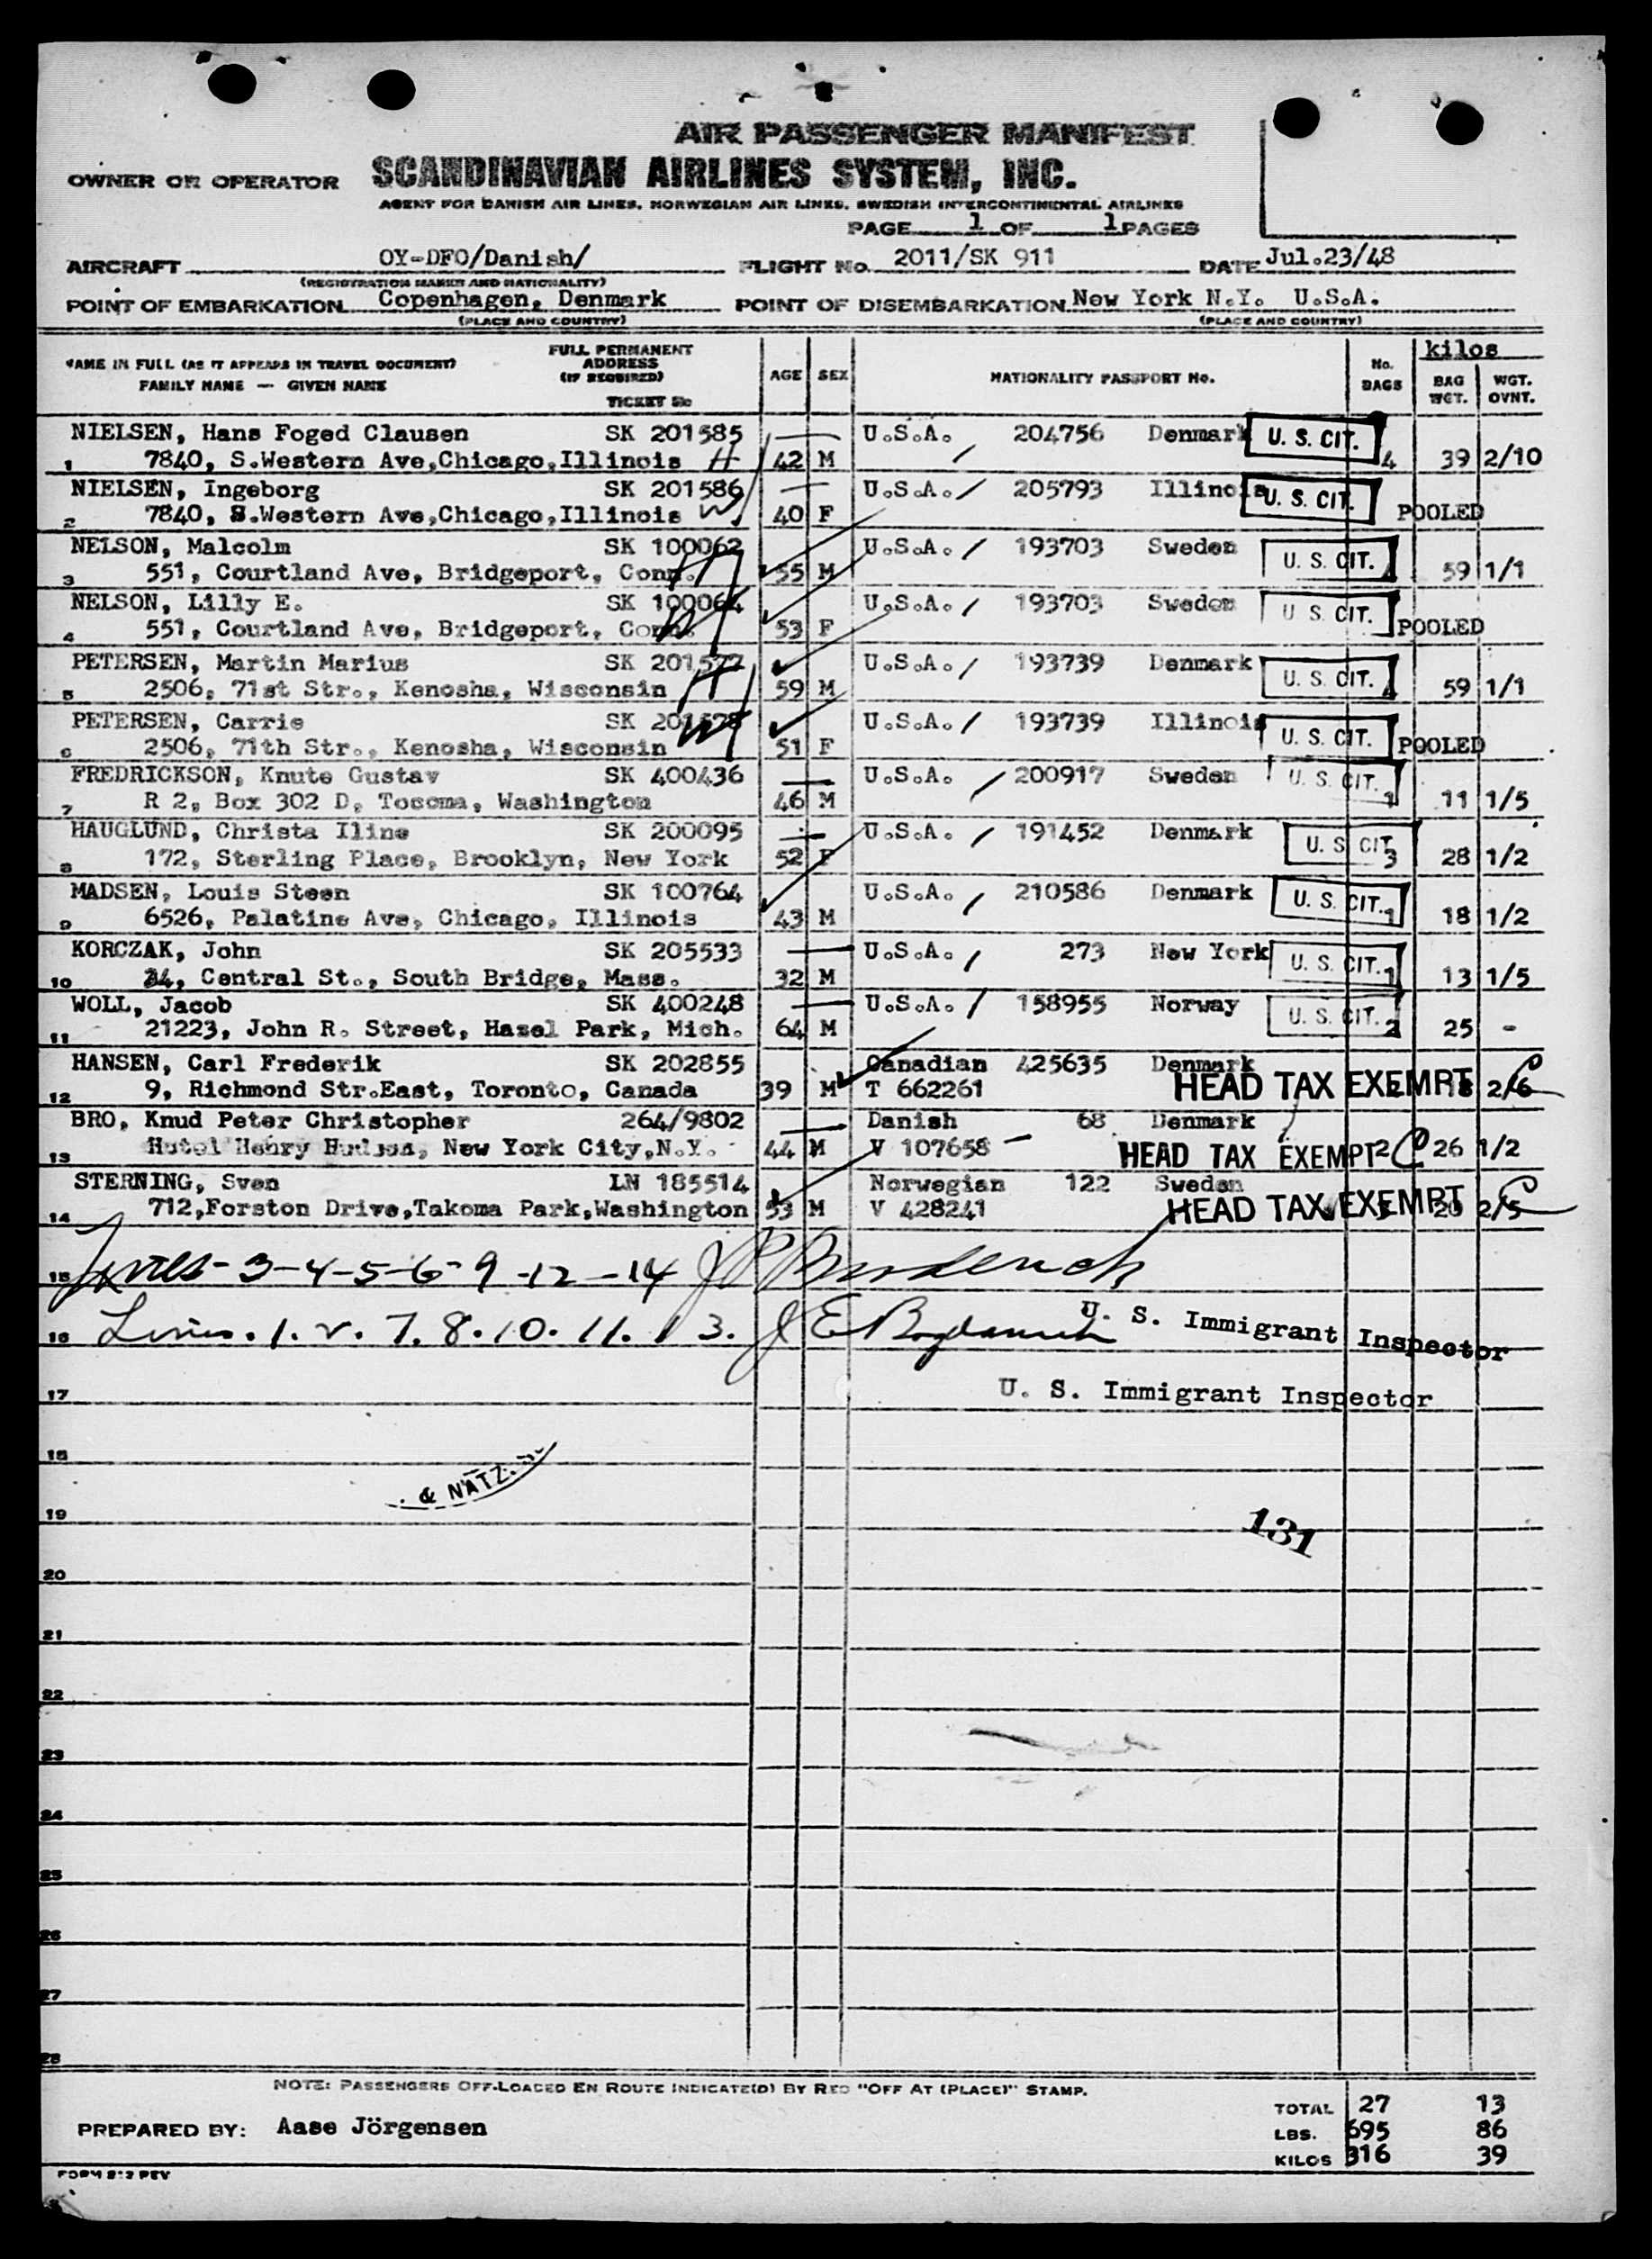 AIR PASSENGER MANIFEST
OWNER OR OPERATOR SCANDINAVIAN AIRLINES SYSTEM, INC.
AGENT FOR DANISH AIR LINES, NORWEGIAN AIR LINES, SWEDISH INTERCONTINENTAL AIRLINES
PAGE 1 OF 1 PAGES
AIRCRAFT OY-DFO/Danish/ FLIGHT No. 2011/SK 911 DATE Jul.23/48
(REGISTRATION MARKS AND NATIONALITY)
POINT OF EMBARKATION Copenhagen, Denmark POINT OF DISEMBARKATION New York N.Y. U.S.A.
(PLACE AND COUNTRY) (PLACE AND COUNTRY)
NAME IN FULL (AS IT APPEARS IN TRAVEL DOCUMENT) FAMILY NAME — GIVEN NAME
FULL PERMANENT ADDRESS (IF REQUIRED) TICKET No
AGE SEX NATIONALITY PASSPORT No. No. BAGS kilos BAG WGT. WGT. OVNT.
NIELSEN, Hans Foged Clausen SK 201585 U.S.A. 204756 Denmark U. S. CIT.
1 7840, S.Western Ave,Chicago,Illinois H 42 M 4 39 2/10
NIELSEN, Ingeborg SK 201586 U.S.A. 205793 Illinois U. S. CIT.
2 7840, S.Western Ave,Chicago,Illinois W 40 F POOLED
NELSON, Malcolm SK 100062 U.S.A. 193703 Sweden U. S. CIT.
3 551, Courtland Ave, Bridgeport, Conn. H 55 M 59 1/1
NELSON, Lilly E. SK 100064 U.S.A. 193703 Sweden U S CIT.
4 551, Courtland Ave, Bridgeport, Conn. W 53 F POOLED
PETERSEN, Martin Marius SK 201577 U.S.A. 193739 Denmark U. S. CIT.
5 2506, 71st Str., Kenosha, Wisconsin H 59 M 59 1/1
PETERSEN, Carrie SK 201578 U.S.A. 193739 Illinois U. S. CIT.
6 2506, 71th Str., Kenosha, Wisconsin W 51 F POOLED
FREDRICKSON, Knute Gustav SK 400436 U.S.A. 200917 Sweden U. S. CIT.
7 R 2, Box 302 D, Tocoma, Washington 46 M 1 11 1/5
HAUGLUND, Christa Iline SK 200095 U.S.A. 191452 Denmark U. S CIT
8 172, Sterling Place, Brooklyn, New York 52 F 3 28 1/2
MADSEN, Louis Steen SK 100764 U.S.A. 210586 Denmark U. S. CIT.
9 6526, Palatine Ave, Chicago, Illinois 43 M 1 18 1/2
KORCZAK, John SK 205533 U.S.A. 273 New York U. S. CIT.
10 24, Central St., South Bridge, Mass. 32 M 1 13 1/5
WOLL, Jacob SK 400248 U.S.A. 158955 Norway U. S. CIT.
11 21223, John R. Street, Hazel Park, Mich. 64 M 2 25 -
HANSEN, Carl Frederik SK 202855 Canadian 425635 Denmark
12 9, Richmond Str.East, Toronto, Canada 39 M T 662261 HEAD TAX EXEMPT 18 2/6
BRO, Knud Peter Christopher 264/9802 Danish 68 Denmark
13 Hotel Henry Hudson, New York City,N.Y. 44 M V 107658 HEAD TAX EXEMPT 2 26 1/2
STERNING, Sven LN 185514 Norwegian 122 Sweden
14 712,Forston Drive,Takoma Park,Washington 53 M V 428241 HEAD TAX EXEMPT 20 2/5
15 Lines-3-4-5-6-9-12-14
U. S. Immigrant Inspector
16 Lines.1.2.7.8.10.11.13. J E
17 U. S. Immigrant Inspector
18
& NATZ.
19
131
20
21
22
23
24
25
26
27
28
NOTE: PASSENGERS OFF-LOADED EN ROUTE INDICATE(D) BY RED "OFF AT (PLACE)" STAMP.
TOTAL 27 13
PREPARED BY: Aase Jörgensen LBS. 695 86
KILOS 316 39
FORM 212 REV